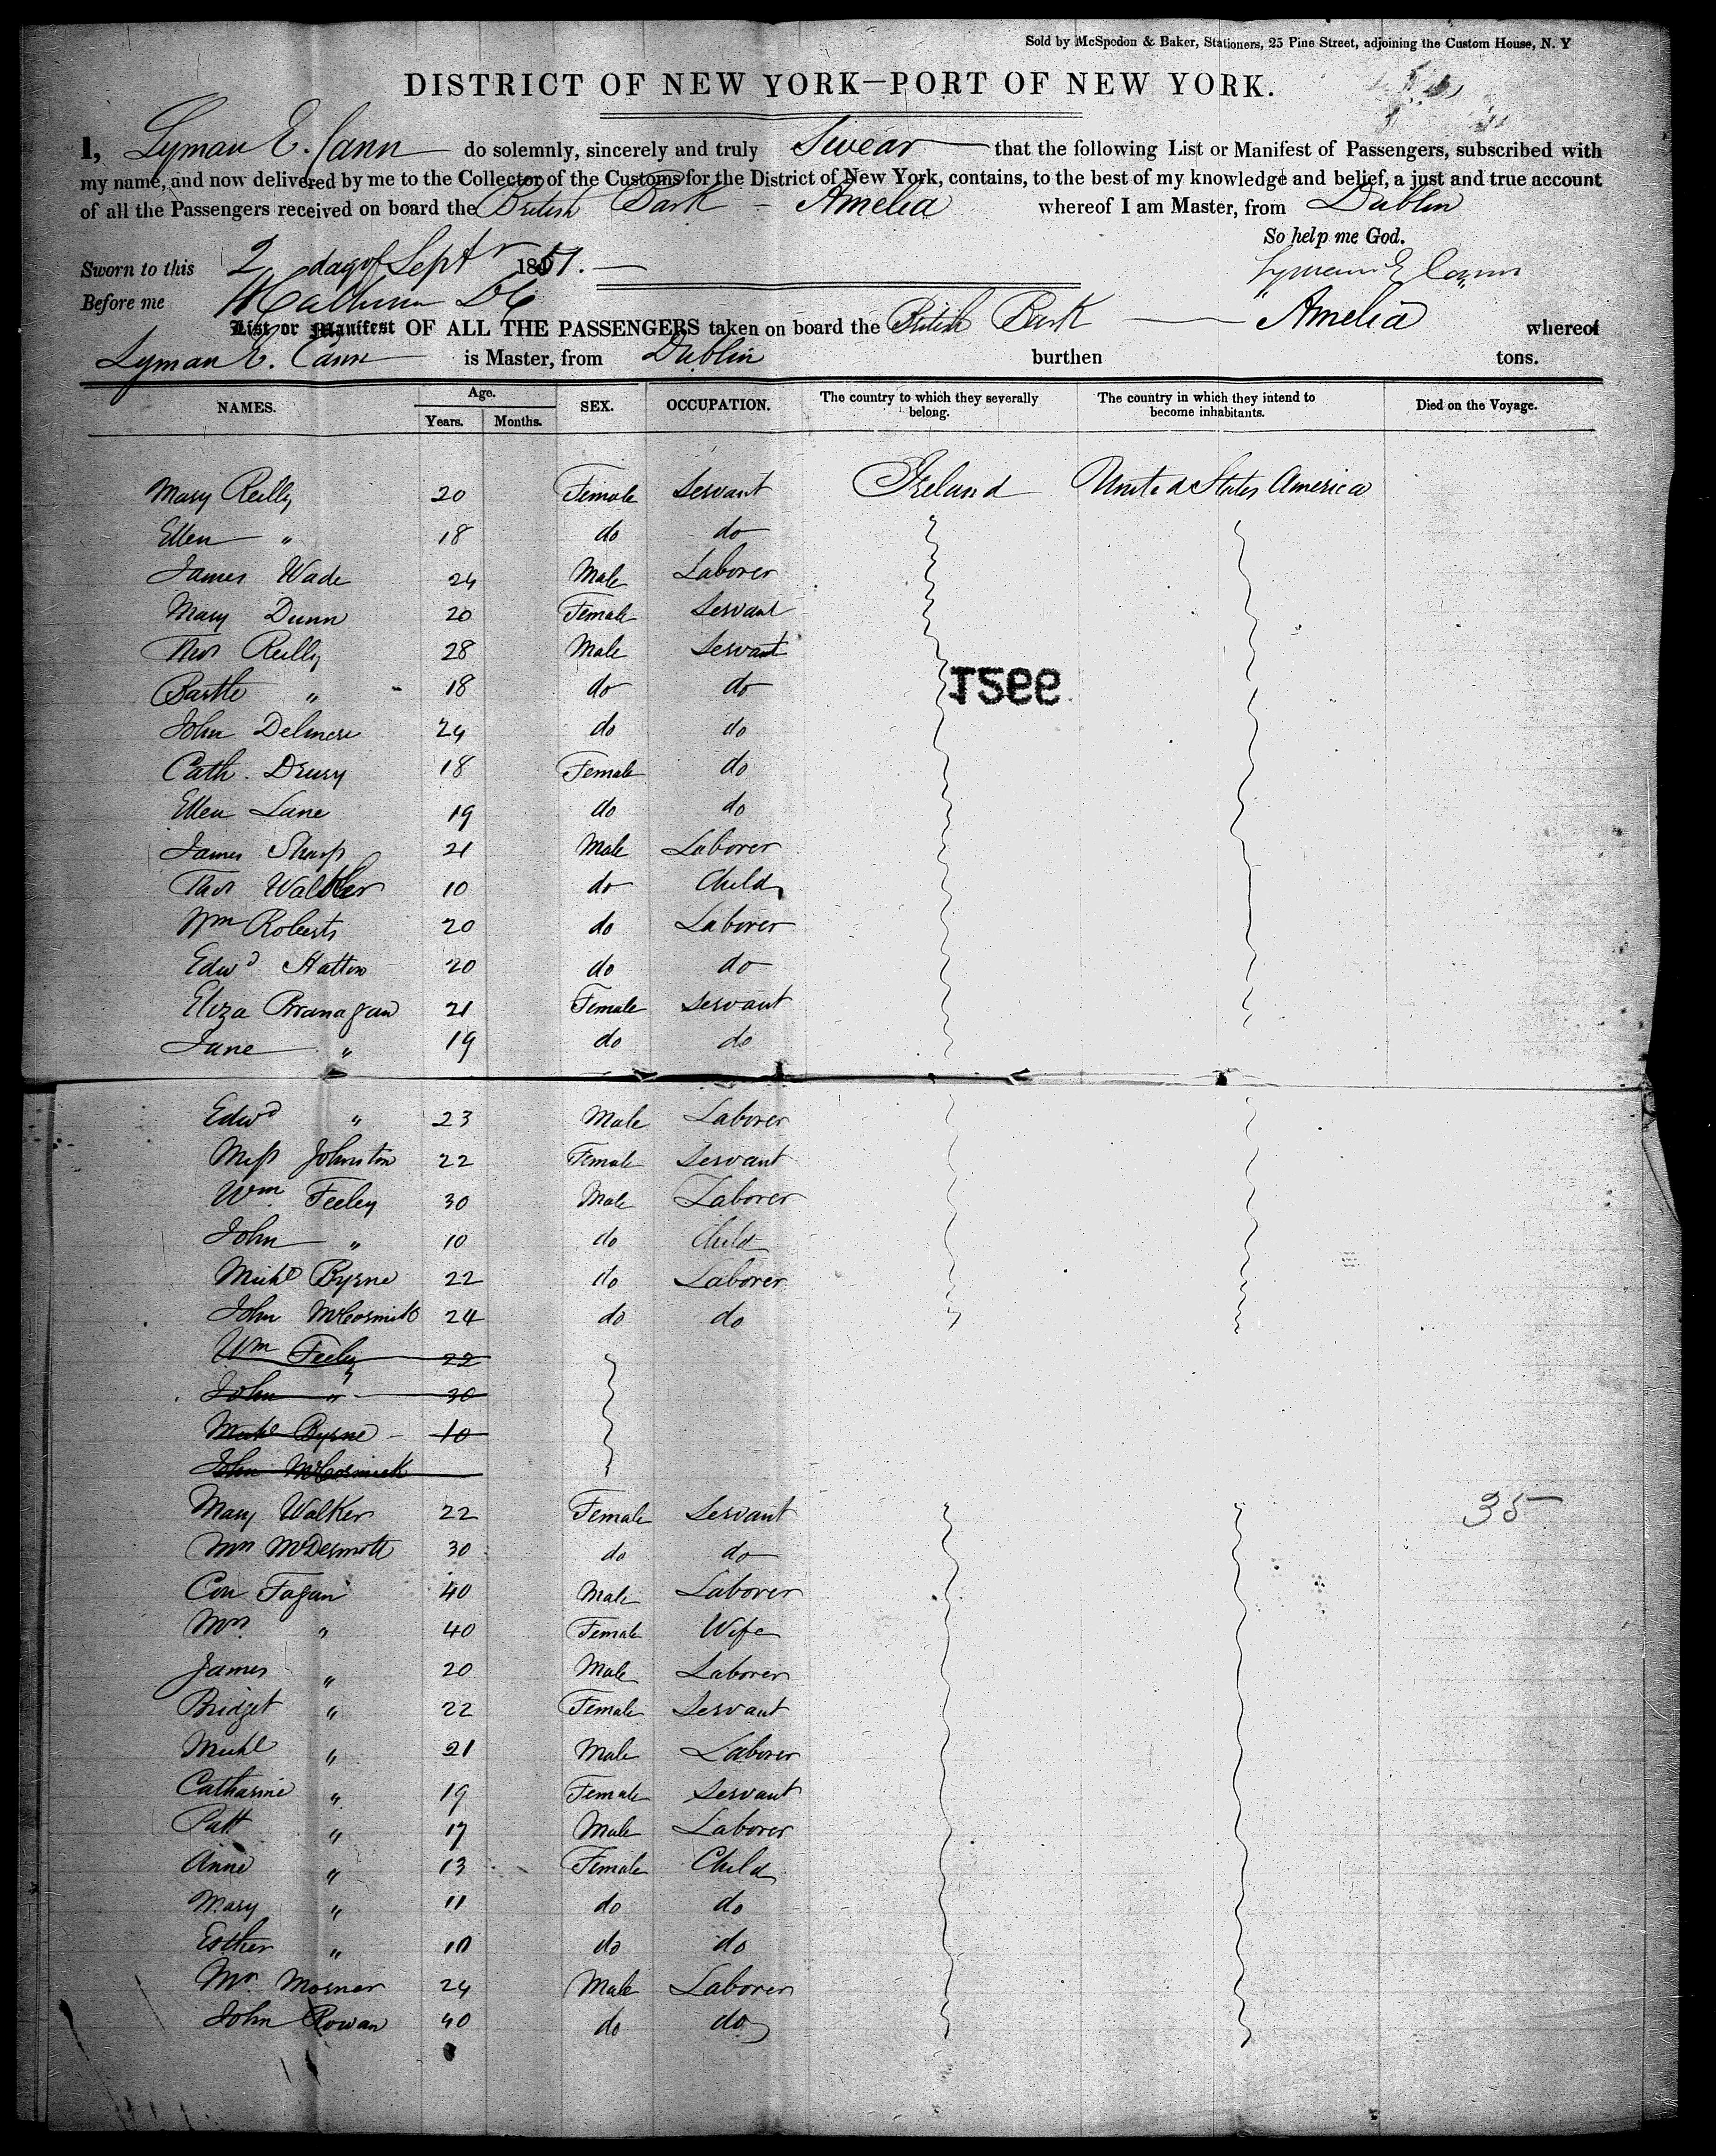 Sold by McSpedon & Baker, Stationers, 25 Pine Street, adjoining the Custom House, N. Y
DISTRICT OF NEW YORK—PORT OF NEW YORK.
I, Lyman E. Cann do solemnly, sincerely and truly Swear that the following List or Manifest of Passengers, subscribed with
my name, and now delivered by me to the Collector of the Customs for the District of New York, contains, to the best of my knowledge and belief, a just and true account
of all the Passengers received on board the British Bark - Amelia whereof I am Master, from Dublin
So help me God.
Sworn to this 2 day of Sept r 1851. Lyman E Cann
Before me
List or Manifest OF ALL THE PASSENGERS taken on board the British Bark Amelia whereof
Lyman E. Cann is Master, from Dublin burthen tons.
NAMES. Age. Years. Months. SEX. OCCUPATION. The country to which they severally belong. The country in which they intend to become inhabitants. Died on the Voyage.
Mary Reilly 20 Female Servant Ireland United States America
Ellen " 18 do do
James Wade 24 Male Laborer
Mary Dunn 20 Female Servant
Thos Reilly 28 Male Servant
Bartle " 18 do do
9927
John Delmere 24 do do
Cath. Drury 18 Female do
Ellen Lane 19 do do
James Sharp 21 Male Laborer
Thos 10 do Child
Wm Roberts 20 do Laborer
Edwd Hatton 20 do do
Eliza Branagan 21 Female Servant
Jane " 19 do do
Edwd " 23 Male Laborer
Miss Johnston 22 Female Servant
Wm Feeley 30 Male Laborer
John " 10 do Child
Michl Byrne 22 do Laborer
John McCormick 24 do do
Wm Feeley 22
John " 30
Michl Byrne - 10
John McCormick
Mary Walker 22 Female Servant 35
Mrs McDermott 30 do do
Con Fagan 40 Male Laborer
Mrs " 40 Female Wife
James " 20 Male Laborer
Bridget " 22 Female Servant
Michl " 21 Male Laborer
Catharine " 19 Female Servant
Patt " 17 Male Laborer
Anne " 13 Female Child
Mary " 11 do do
Esther " 10 do do
Mr. Mosner 24 Male Laborer
John Rowan 40 do do